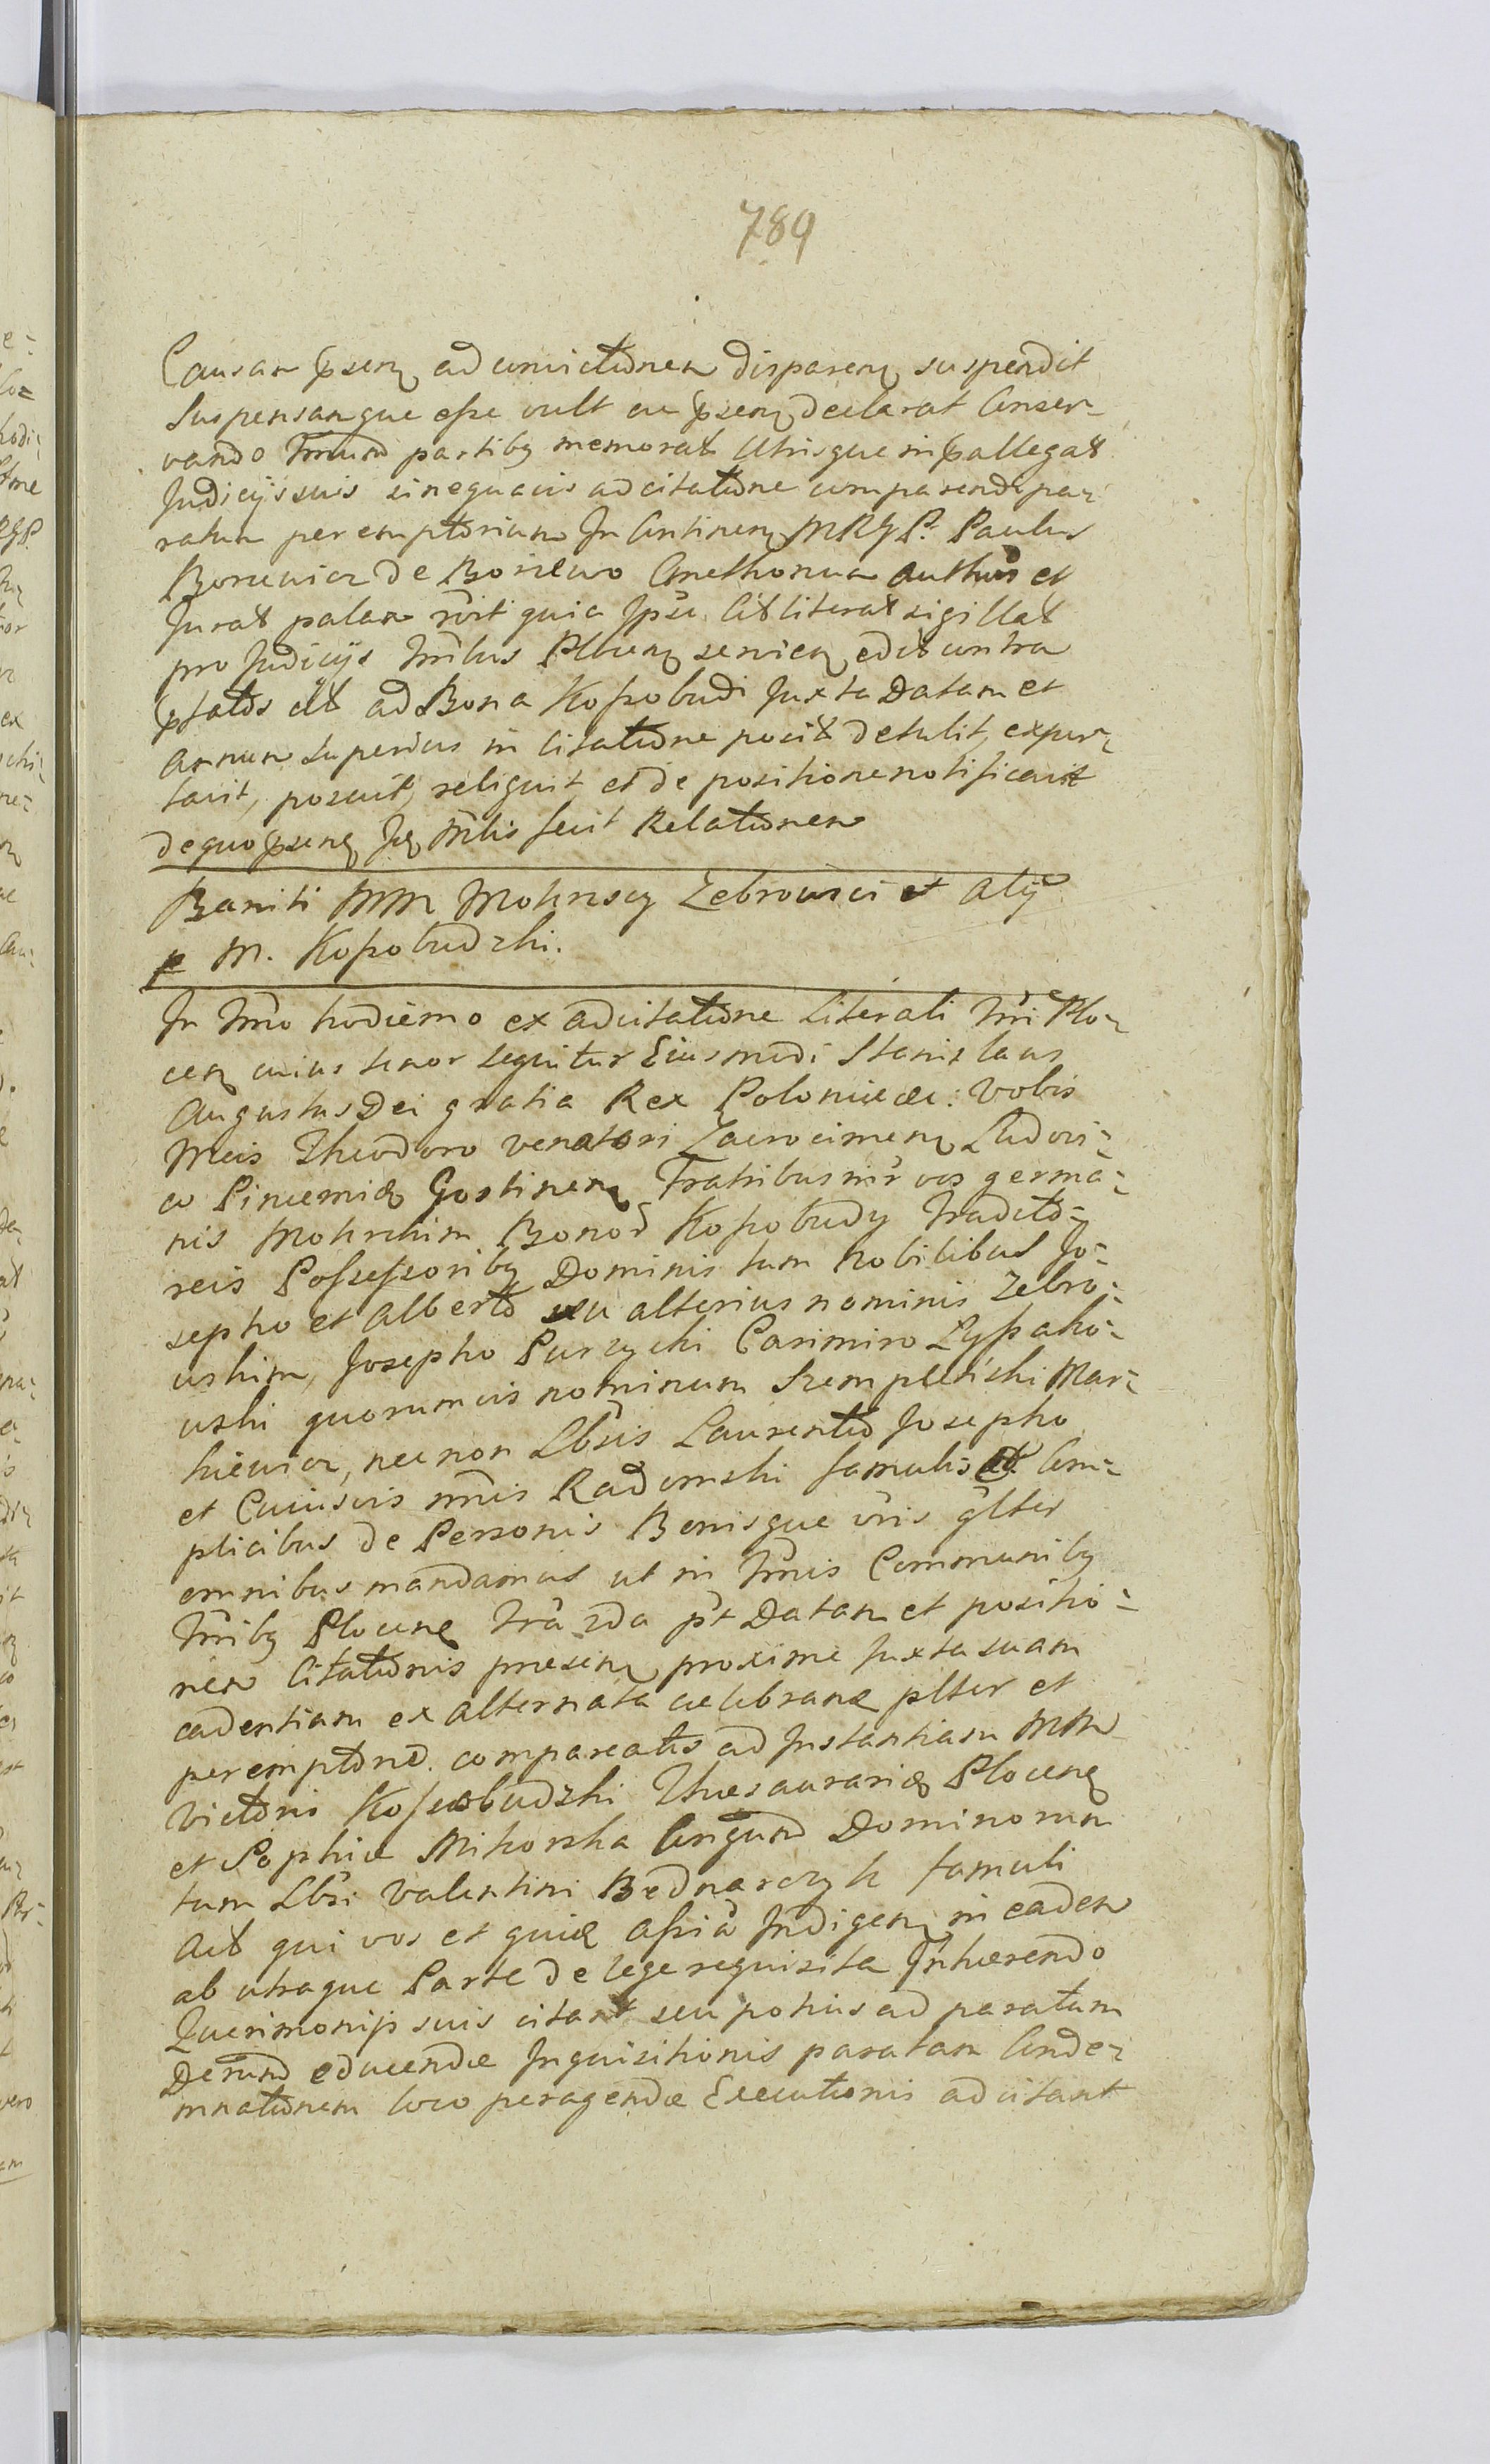 789
Causam psen ad convictionem disparem suspendit
Suspensamque esse vult ac psen declarat Conser-
vando Tmum partiby memorat utrisque in pallegat
Judicys suis sine quavis adcitatione comparendi pa-
ratum peremptorium In Continen MRGP. Paulus
Boruwicz de Borzewo Czethonum authus et
Jurat palam rõit quia Ipse lit literat sigillat
pro Judicys Tribus Plocen servien edit contra
pstatos cit ad Bona Kossobudi Juxta Datam et
annum Superius in Citatione posit detulit, expor-
tavit, posuit, reliquit et de positione notificavit
de quo psens Jis Mlis fecit Relationem
Baniti MM Mokrscy Zebrowsci et alÿ
p M. Kossobudzki.
In Tmo hodierno ex adcitatione Literali Tri Plo-
cen cuius tenor sequitur Eiusmodi Stanislaus
Augustus Dei gratia Rex Poloniæ &c: Vobis
Mcis Theodoro venatori Zacrocimen Ludovi-
co Pincernæ Gostinen Fratribus inr vos germa-
nis Mokrskim Bonor Kossobudy Tradito-
reis Possessoriby Dominis tum Nobilibus Jo-
sepho et Alberto seu alterius nominis Zebro-
wskim, Josepho Purzycki Casimiro Lyssako-
wski quorumvis nominum Szempliński Mar-
kiewicz, nec non Lbris Laurentio Josepho
et Cuiusvis nmis Radomski famulis et Com-
plicibus de Personis Bonisque vris glter
omnibus mandamus ut in Tmis Communiby
Triby Plocen Tra 2da pt Datam et positio-
nem Citationis præsen proxime Juxta suam
cadentiam ex alternata celebran plter et
peremptorie compareatis ad Instantiam MM
Victoris Kossobudzki Thesaurarij Plocen
et Sophiæ Mikorska Congum Dominorum
tum Lbri Valentini Bednarczyk famuli
Act qui vos et quia Indigen in eadem
ab utraque Parte de lege requisita Inhærendo
Querimonijs suis citant seu potius ad paratum
Terum educendæ Inquisitionis paratam Conde-
mnationem loco peragendæ Executionis adcitant